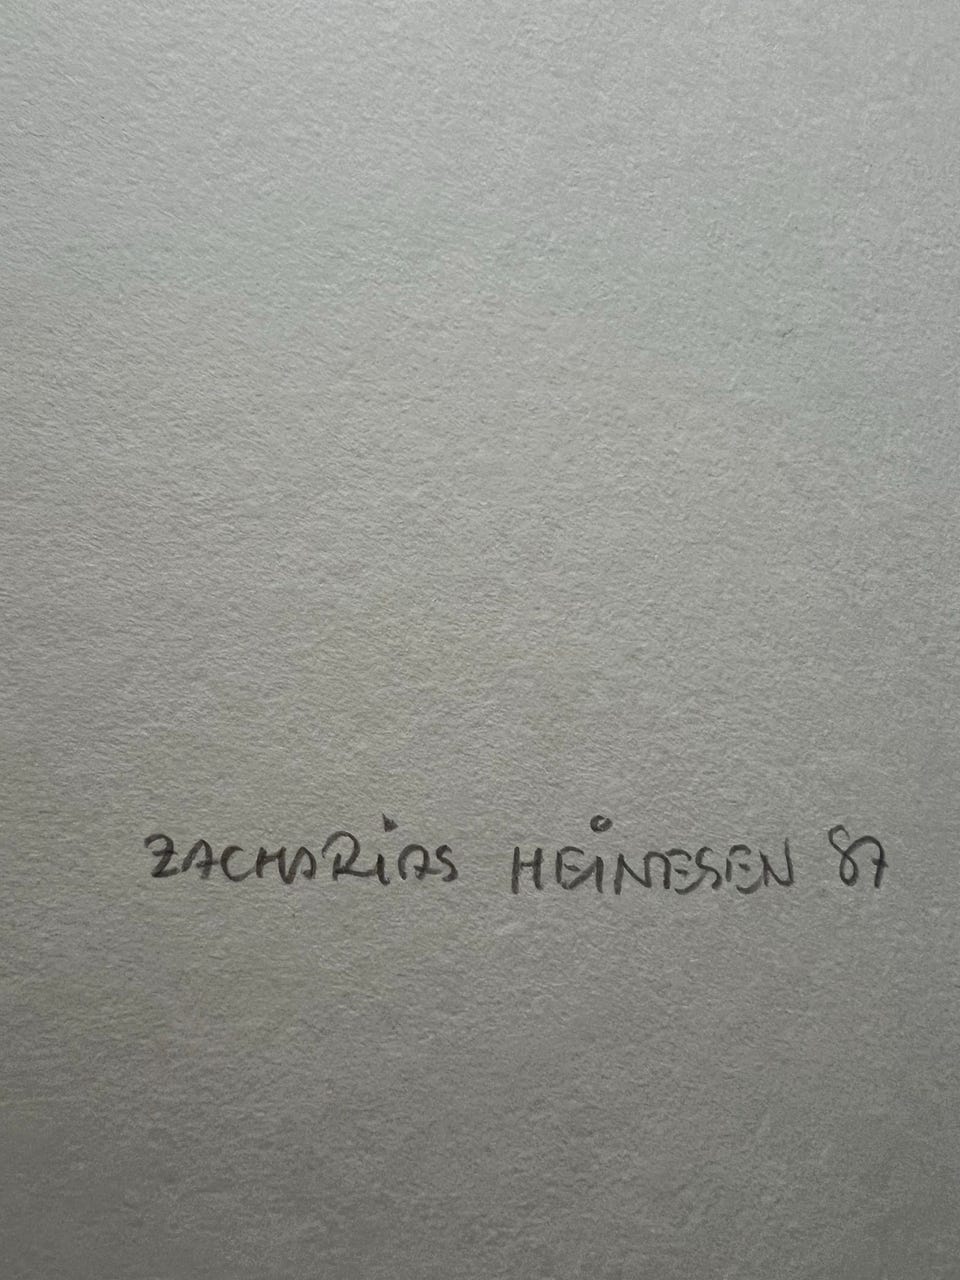 ZACHARiAS HEiNESEN 87